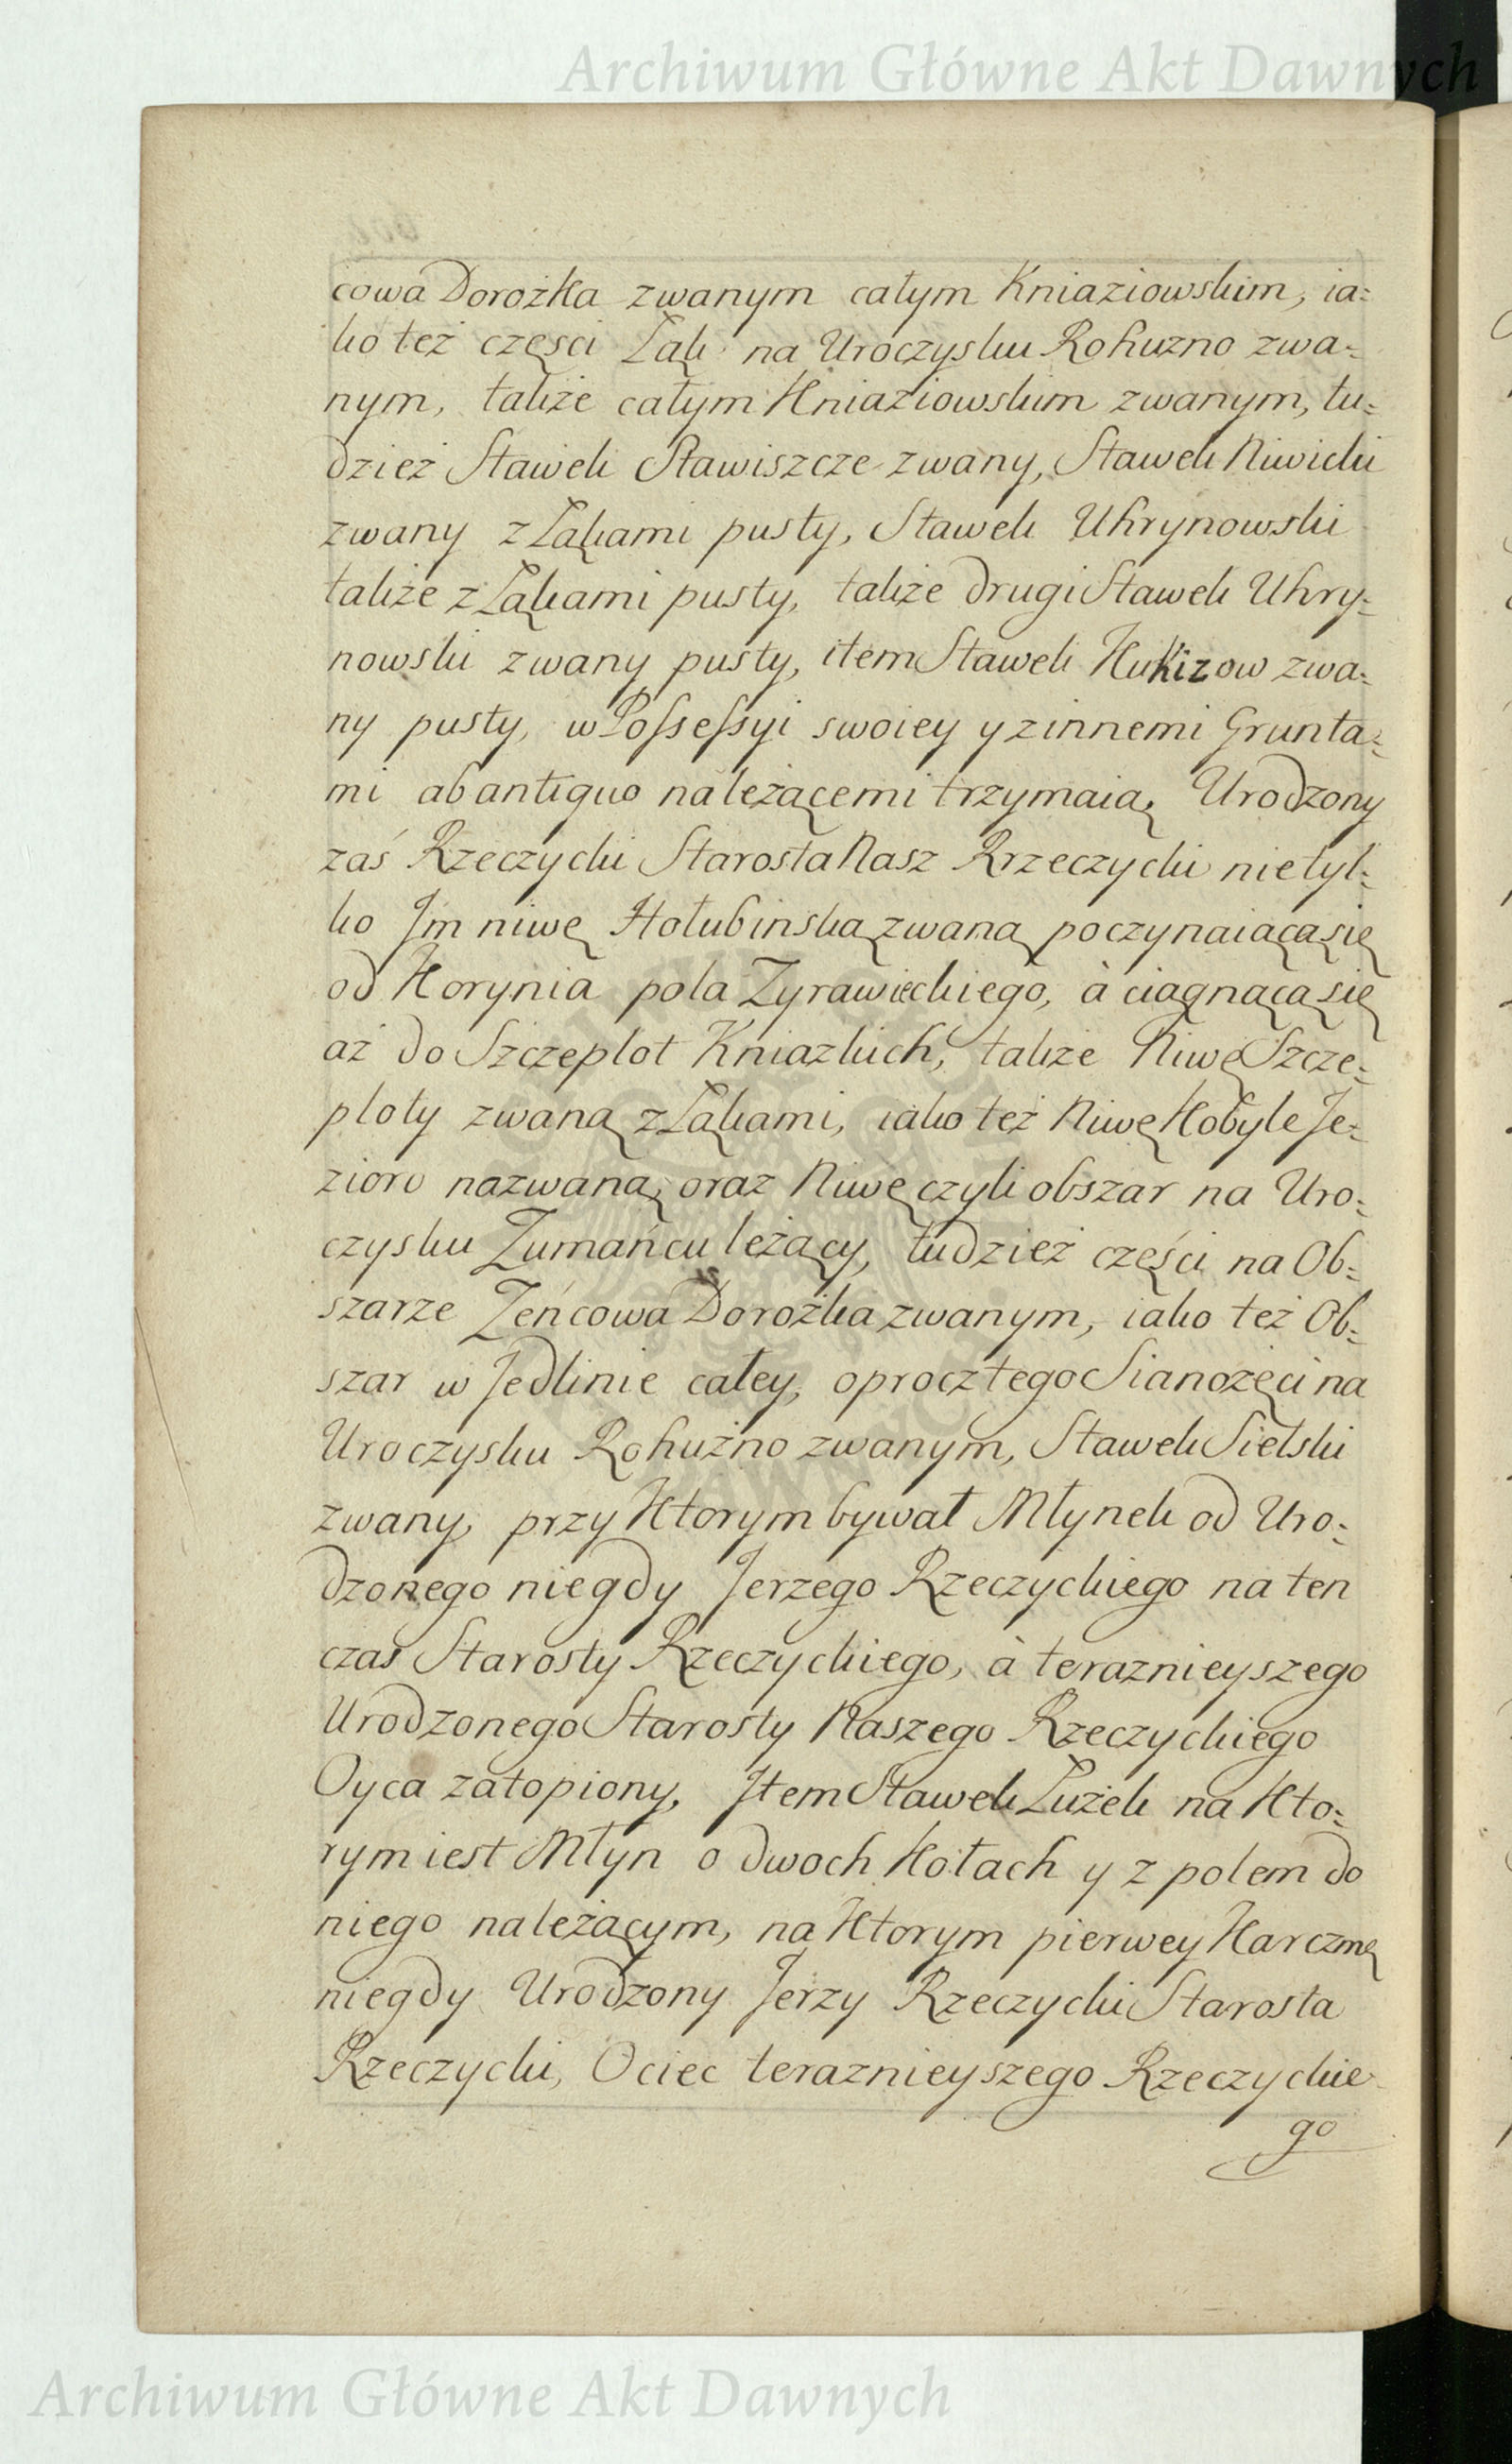 Archiwum Główne Akt Dawnych
cowa Dorożka zwanym całym Kniaziowskim, ia=
ko też częsci Łąk na Uroczysku Rohuzno zwa=
nym, także całym Kniaziowskim zwanym, tu=
dzież Stawek Stawiszcze zwany, Stawek Niwicki
zwany z Łąkami pusty, Stawek Uhrynowski
także z Łąkami pusty, także drugi Stawek Uhry=
nowski zwany pusty, item Stawek Hukizow zwa=
ny pusty, w Possessyi swoiey y z innemi Grunta=
mi ab antiquo należącemi trzymaią, Urodzony
zaś Rzeczycki Starosta Nasz Rzeczycki nie tyl=
ko Jm niwę Hołubinską zwaną poczynaiącą się
od Horynia pola Zyrawieckiego, à ciągnącą się
aż do Szczeplot Kniazkich, także Niwę Szcze=
ploty zwaną z Łąkami, iako też Niwę Kobyle Je=
zioro nazwaną, oraz Niwę czyli obszar na Uro=
czysku Zumańcu leżący, tudzież części na Ob=
szarze Zeńcowa Dorożka zwanym, iako też Ob=
szar w Jedlinie całey, oprocz tego Sianożęci na
Uroczysku Rohużno zwanym, Stawek Sielski
zwany, przy Ktorym bywał Młynek od Uro=
dzonego niegdy Jerzego Rzeczyckiego na ten
czas Starosty Rzeczyckiego, à teraznieyszego
Urodzonego Starosty Naszego Rzeczyckiego
Oyca zatopiony, Jtem Stawek Łużek na Kto=
rym iest Młyn o dwoch Kołach y z polem do
niego należącym, na Ktorym pierwey Karczmę
niegdy Urodzony Jerzy Rzeczycki Starosta
Rzeczycki, Ociec teraznieyszego Rzeczyckie
go
Archiwum Główne Akt Dawnych